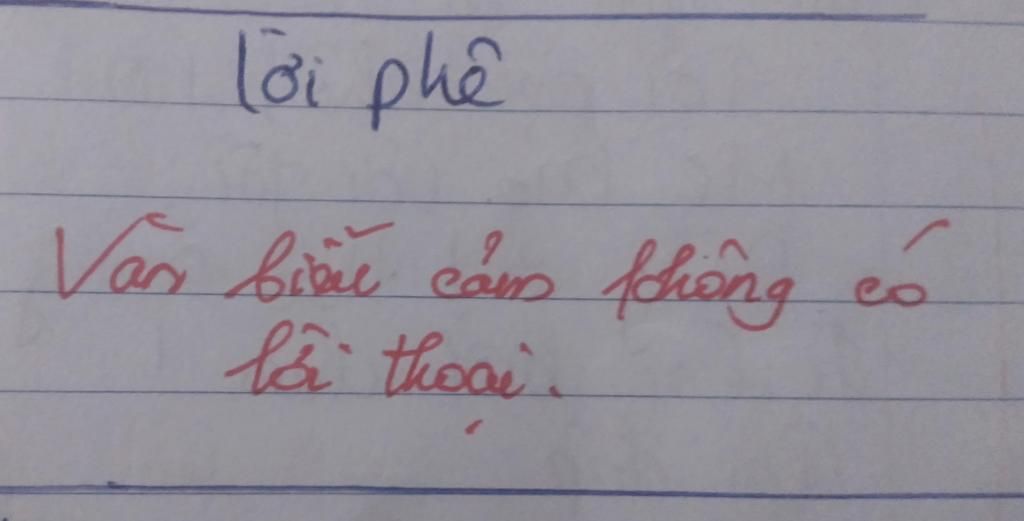 Lời phê
Văn biểu cảm không có
lời thoại.